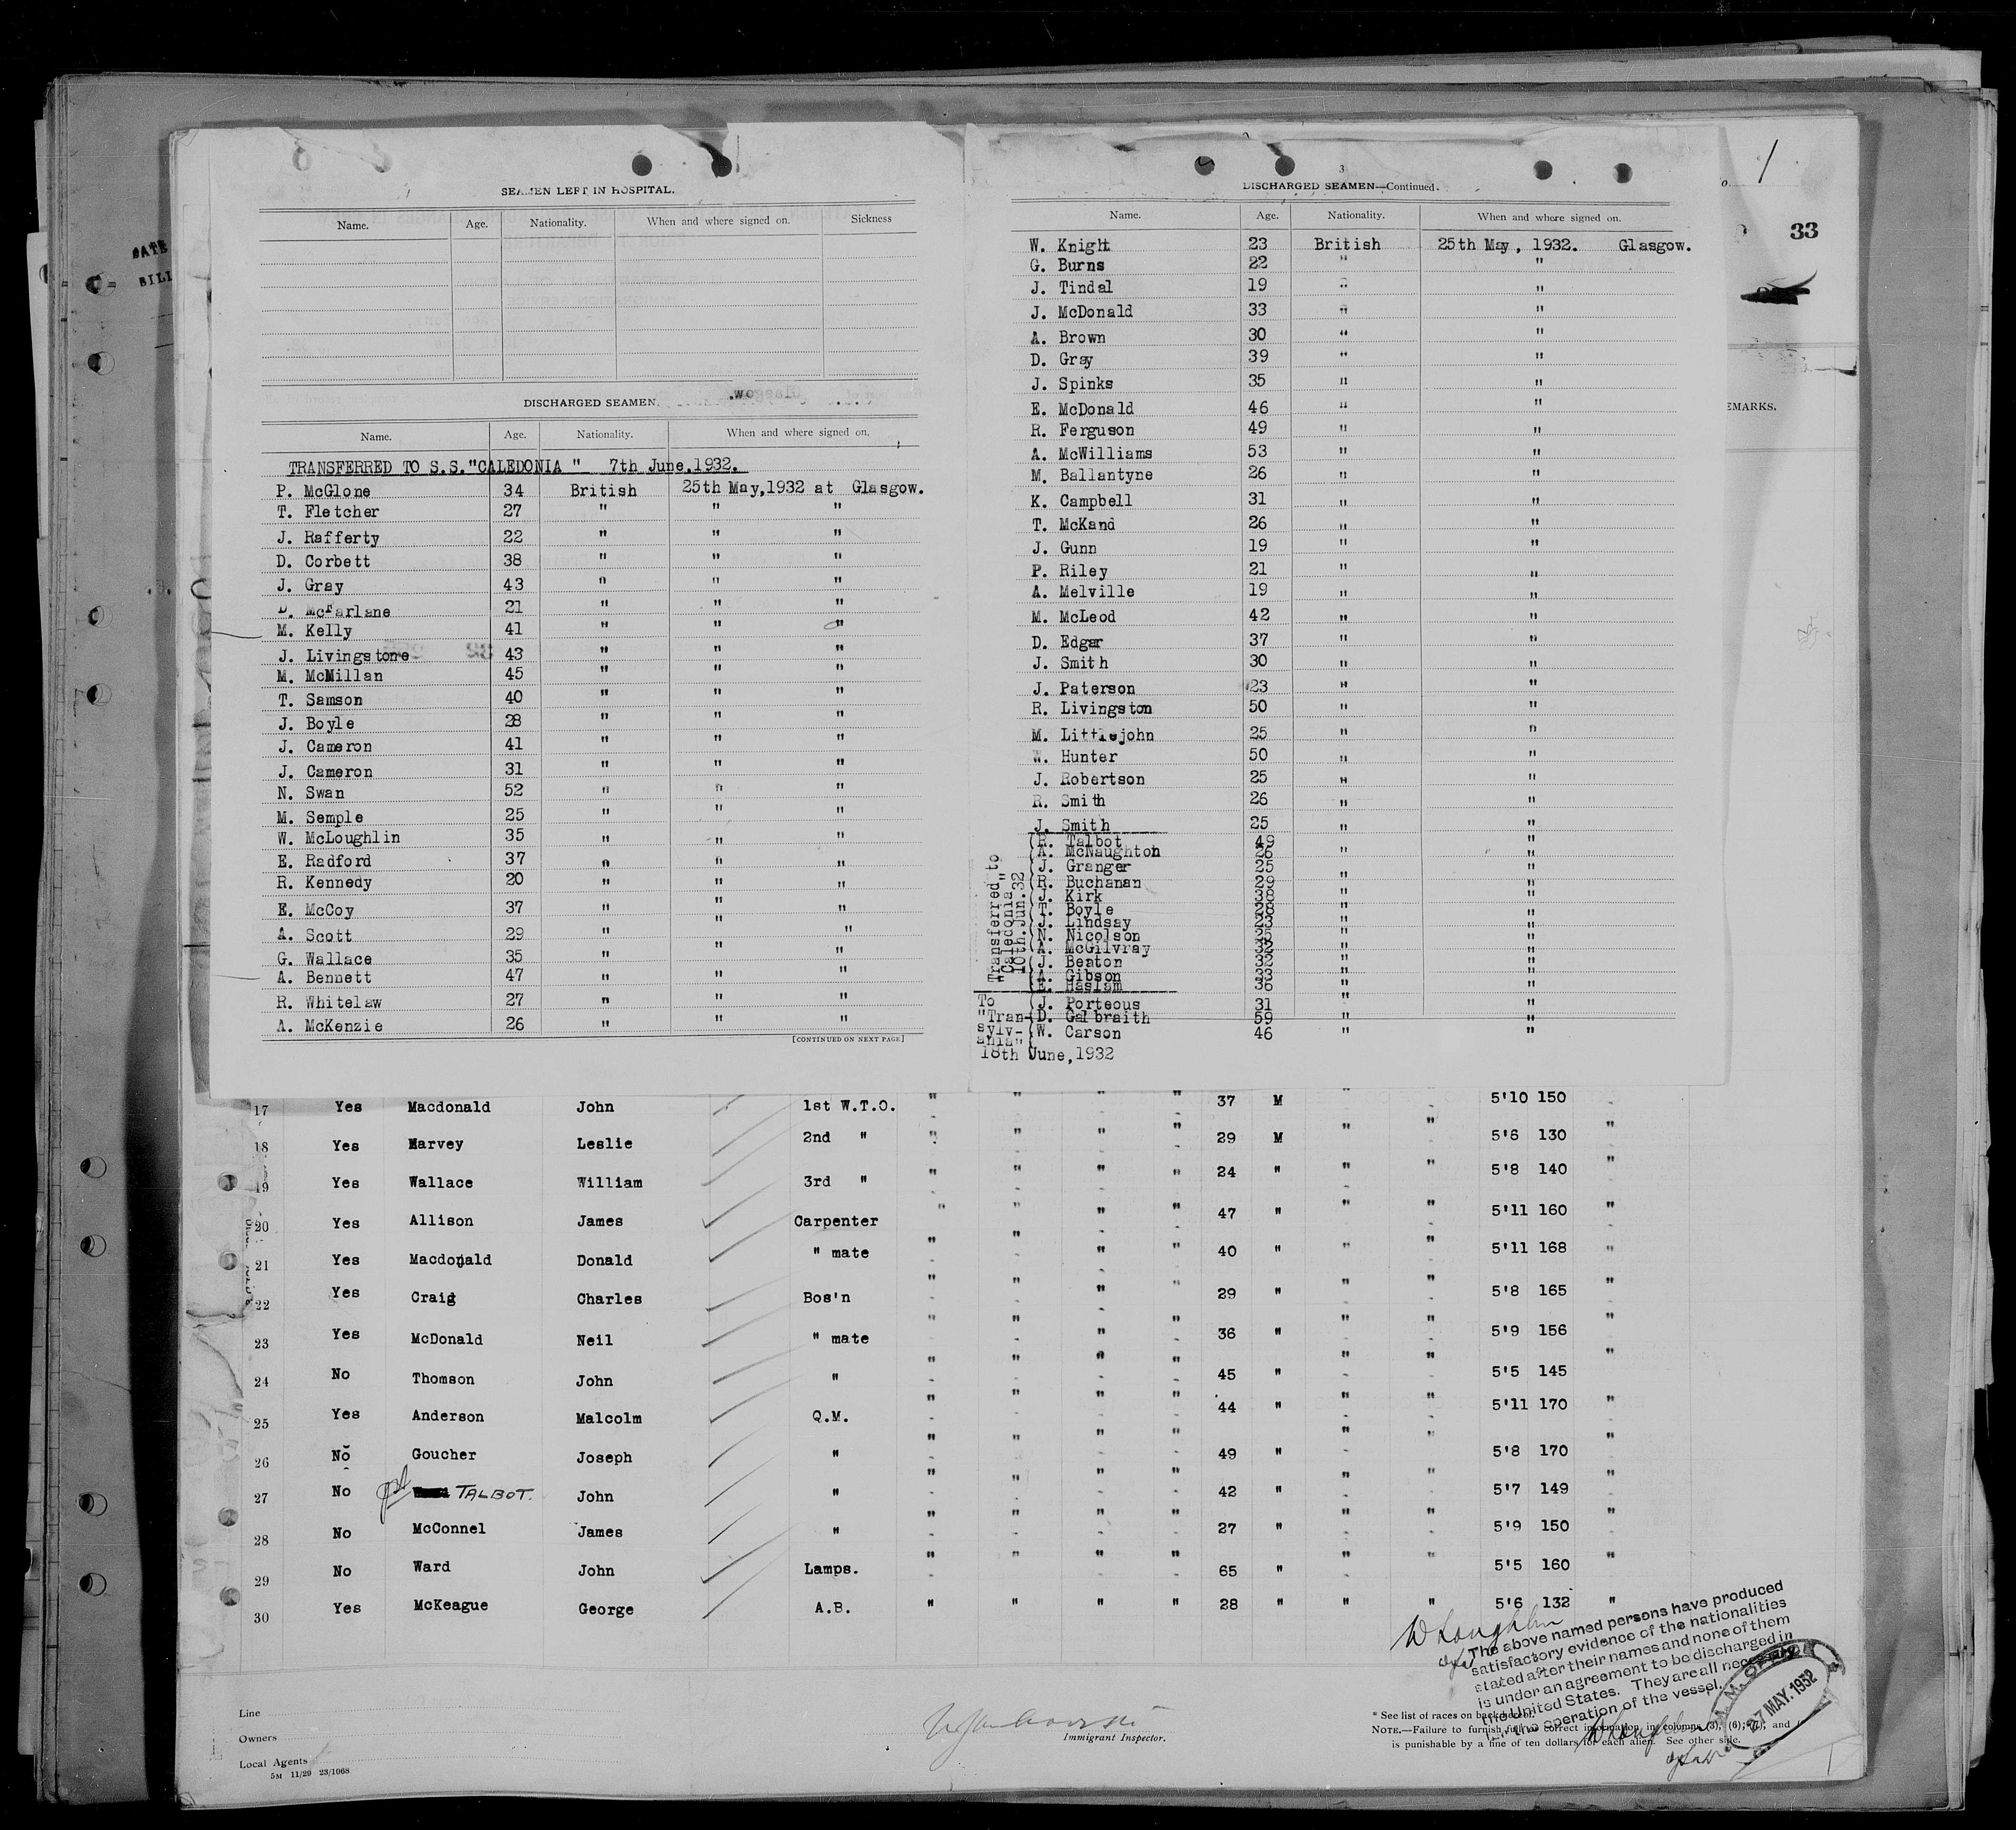 SEAMEN LEFT IN HOSPITAL.
Name. Age. Nationality. When and where signed on. Sickness
DISCHARGED SEAMEN
Name. Age. Nationality. When and where signed on.
TRANSFERRED TO S.S."CALEDONIA " 7th June.1932.
P. McGlone 34 British 25th May,1932 at Glasgow.
T. Fletcher 27 " " "
J. Rafferty 22 " " "
D. Corbett 38 " " "
J. Gray 43 " " "
D. McFarlane 21 " " "
M. Kelly 41 " " "
J. Livingstone 43 " " "
M. McMillan 45 " " "
T. Samson 40 " " "
J. Boyle 28 " " "
J. Cameron 41 " " "
J. Cameron 31 " " "
N. Swan 52 " " "
M. Semple 25 " " "
W. McLoughlin 35 " " "
E. Radford 37 " " "
R. Kennedy 20 " " "
E. McCoy 37 " " "
A. Scott 29 " " "
G. Wallace 35 " " "
A. Bennett 47 " " "
R. Whitelaw 27 " " "
A. McKenzie 26 " " "
[CONTINUED ON NEXT PAGE]
3
DISCHARGED SEAMEN—Continued.
Name. Age. Nationality. When and where signed on.
W. Knight 23 British 25th May, 1932. Glasgow.
G. Burns 22 " "
J. Tindal 19 " "
J. McDonald 33 " "
A. Brown 30 " "
D. Gray 39 " "
J. Spinks 35 " "
E. McDonald 46 " "
R. Ferguson 49 " "
A. McWilliams 53 " "
M. Ballantyne 26 " "
K. Campbell 31 " "
T. McKand 26 " "
J. Gunn 19 " "
P. Riley 21 " "
A. Melville 19 " "
M. McLeod 42 " "
D. Edgar 37 " "
J. Smith 30 " "
J. Paterson 23 " "
R. Livingston 50 " "
M. Littlejohn 25 " "
W. Hunter 50 " "
J. Robertson 25 " "
R. Smith 26 " "
J. Smith 25 " "
Transferred to
"Caledonia"
10th.Jun.32
(R. Talbot 49 "
(A. McNaughton 26 " "
(J. Granger 25 "
(R. Buchanan 29 " "
(J. Kirk 38 "
(T. Boyle 28 " "
(J. Lindsay 23 " "
(N. Nicolson 25 " "
(A. McGilvray 32 " "
(J. Beaton 32 " "
(A. Gibson 33 " "
(E. Haslam 36 " "
To (J. Porteous 31 " "
"Tran-(D. Galbraith 59 " "
sylv-(W. Carson 46 " "
ania"(
18th June,1932
1
33
EMARKS.
DATE
BILL
17 Yes Macdonald John 1st W.T.O. " " " " 37 M " " 5'10 150
18 Yes Harvey Leslie 2nd " " " " " 29 M " " 5'6 130 "
19 Yes Wallace William 3rd " " " " " 24 " " " 5'8 140 "
20 Yes Allison James Carpenter " " " " 47 " " " 5'11 160 "
21 Yes Macdonald Donald " mate " " " " 40 " " " 5'11 168 "
22 Yes Craig Charles Bos'n " " " " 29 " " " 5'8 165 "
23 Yes McDonald Neil " mate " " " " 36 " " " 5'9 156 "
24 No Thomson John " " " " " 45 " " " 5'5 145 "
25 Yes Anderson Malcolm Q.M. " " " " 44 " " " 5'11 170 "
26 No Goucher Joseph " " " " " 49 " " " 5'8 170 "
27 No TALBOT. John " " " " " 42 " " " 5'7 149 "
28 No McConnel James " " " " " 27 " " " 5'9 150 "
29 No Ward John Lamps. " " " " 65 " " " 5'5 160 "
30 Yes McKeague George A.B. " " " " 28 " " " 5'6 132 "
The above named persons have produced
satisfactory evidence of the nationalities
stated after their names and none of them
is under an agreement to be discharged in
the United States. They are all necessary
for the operation of the vessel.
27 MAY.1932
Line
Owners
Local Agents
5M 11/29 23/1068
Immigrant Inspector.
* See list of races on back hereof.
NOTE.—Failure to furnish full or correct information in columns (3), (6), (7), and
is punishable by a fine of ten dollars for each alien. See other side.